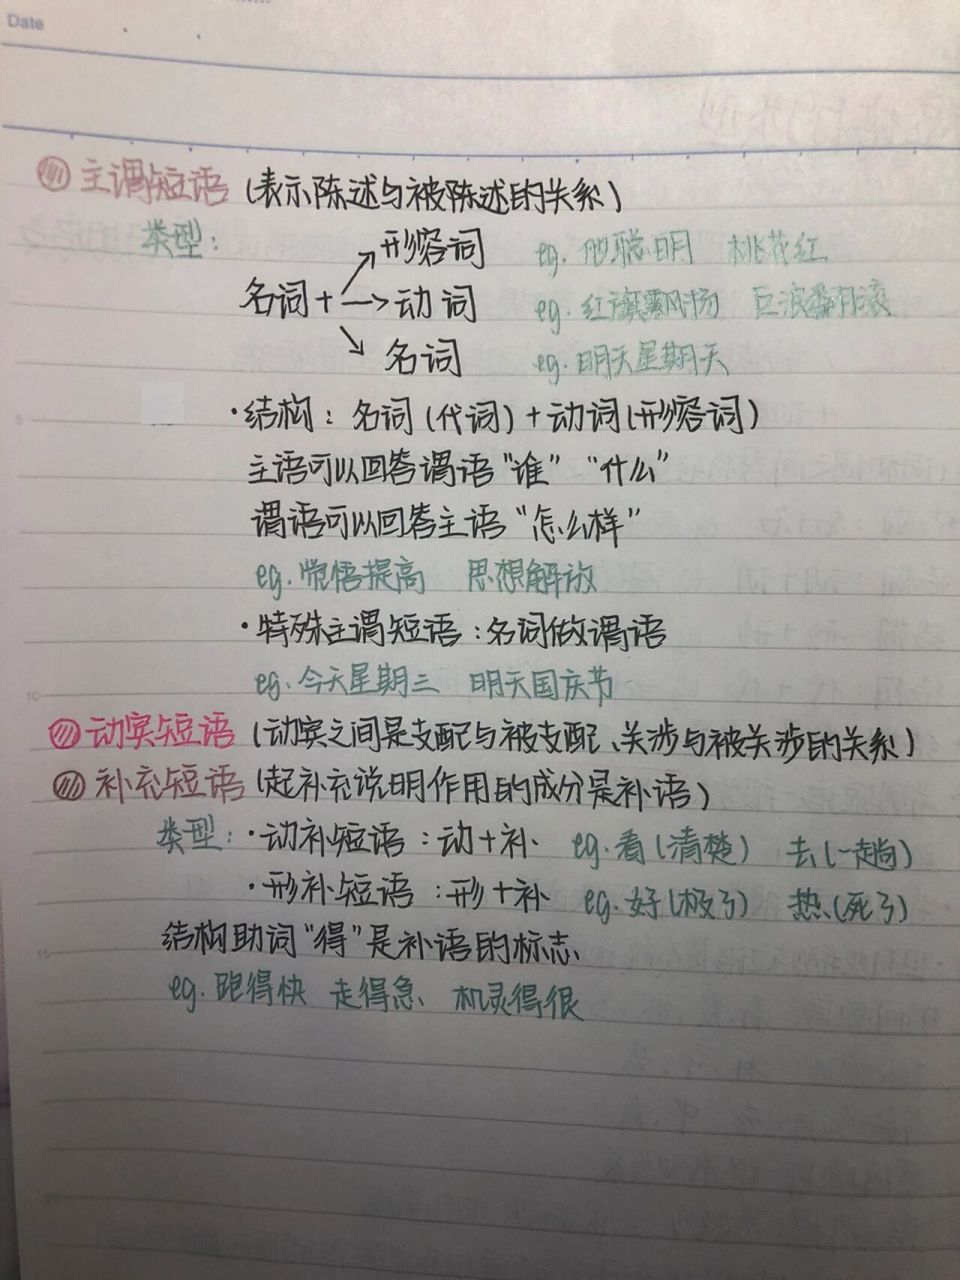 Date
主谓短语(表示陈述与被陈述的关系)
类型:
形容词 eg. 他聪明 桃花红
名词+ 动词 eg. 红旗飘扬 巨浪翻滚
名词 eg. 明天星期天
·结构:名词(代词)+动词(形容词)
5
主语可以回答谓语“谁”“什么”
谓语可以回答主语“怎么样”
eg. 觉悟提高 思想解放
·特殊主谓短语:名词做谓语
eg. 今天星期三 明天国庆节
10
动宾短语(动宾之间是支配与被支配、关涉与被关涉的关系)
补充短语(起补充说明作用的成分是补语)
类型:·动补短语:动+补 eg. 看(清楚) 去(一趟)
·形补短语:形+补 eg. 好(极了) 热(死了)
结构助词“得”是补语的标志、
15
eg. 跑得快 走得急、 机灵得很